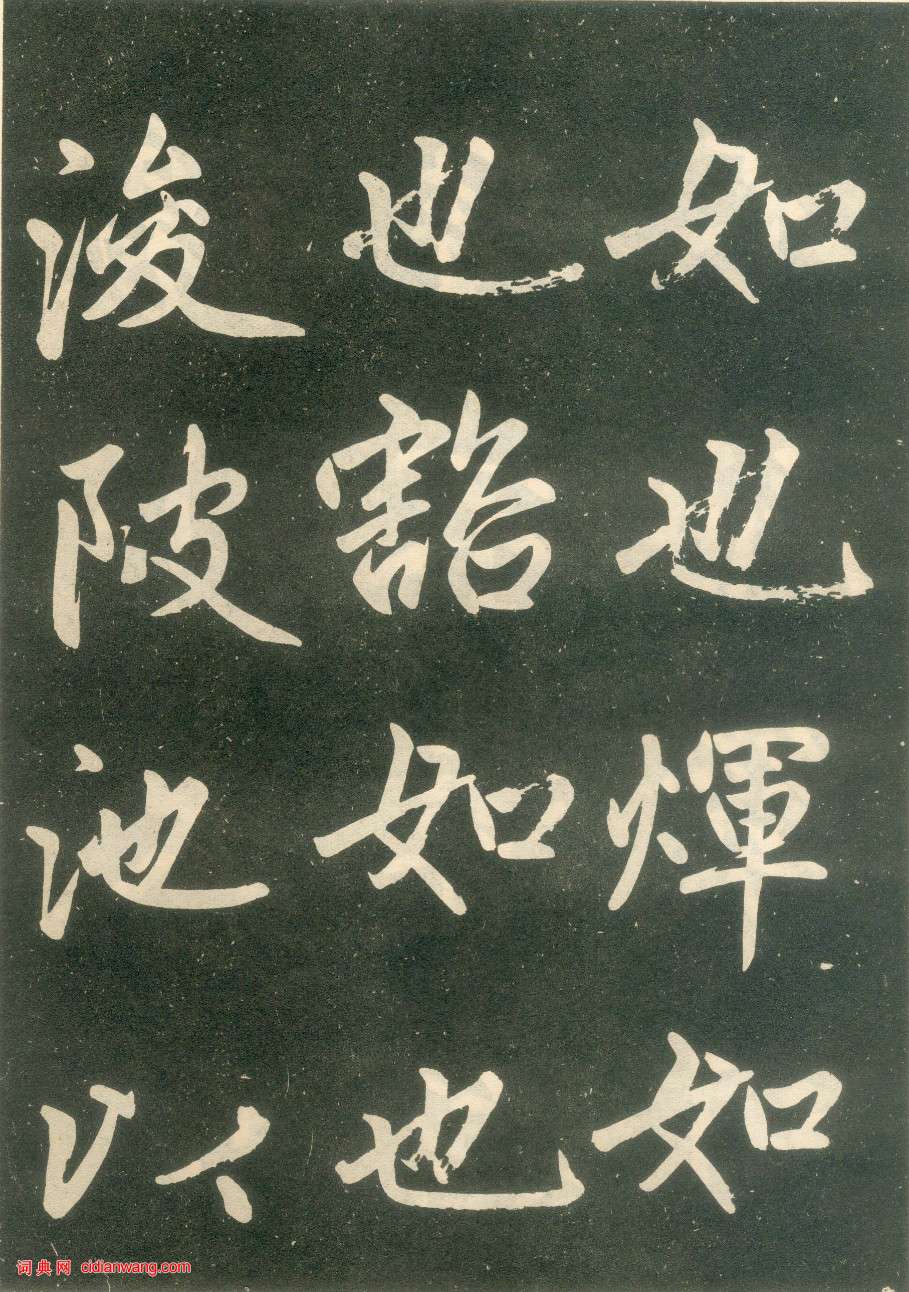 如也煇如
也豁如也
浚陂池以
词典网 cidianwang.com